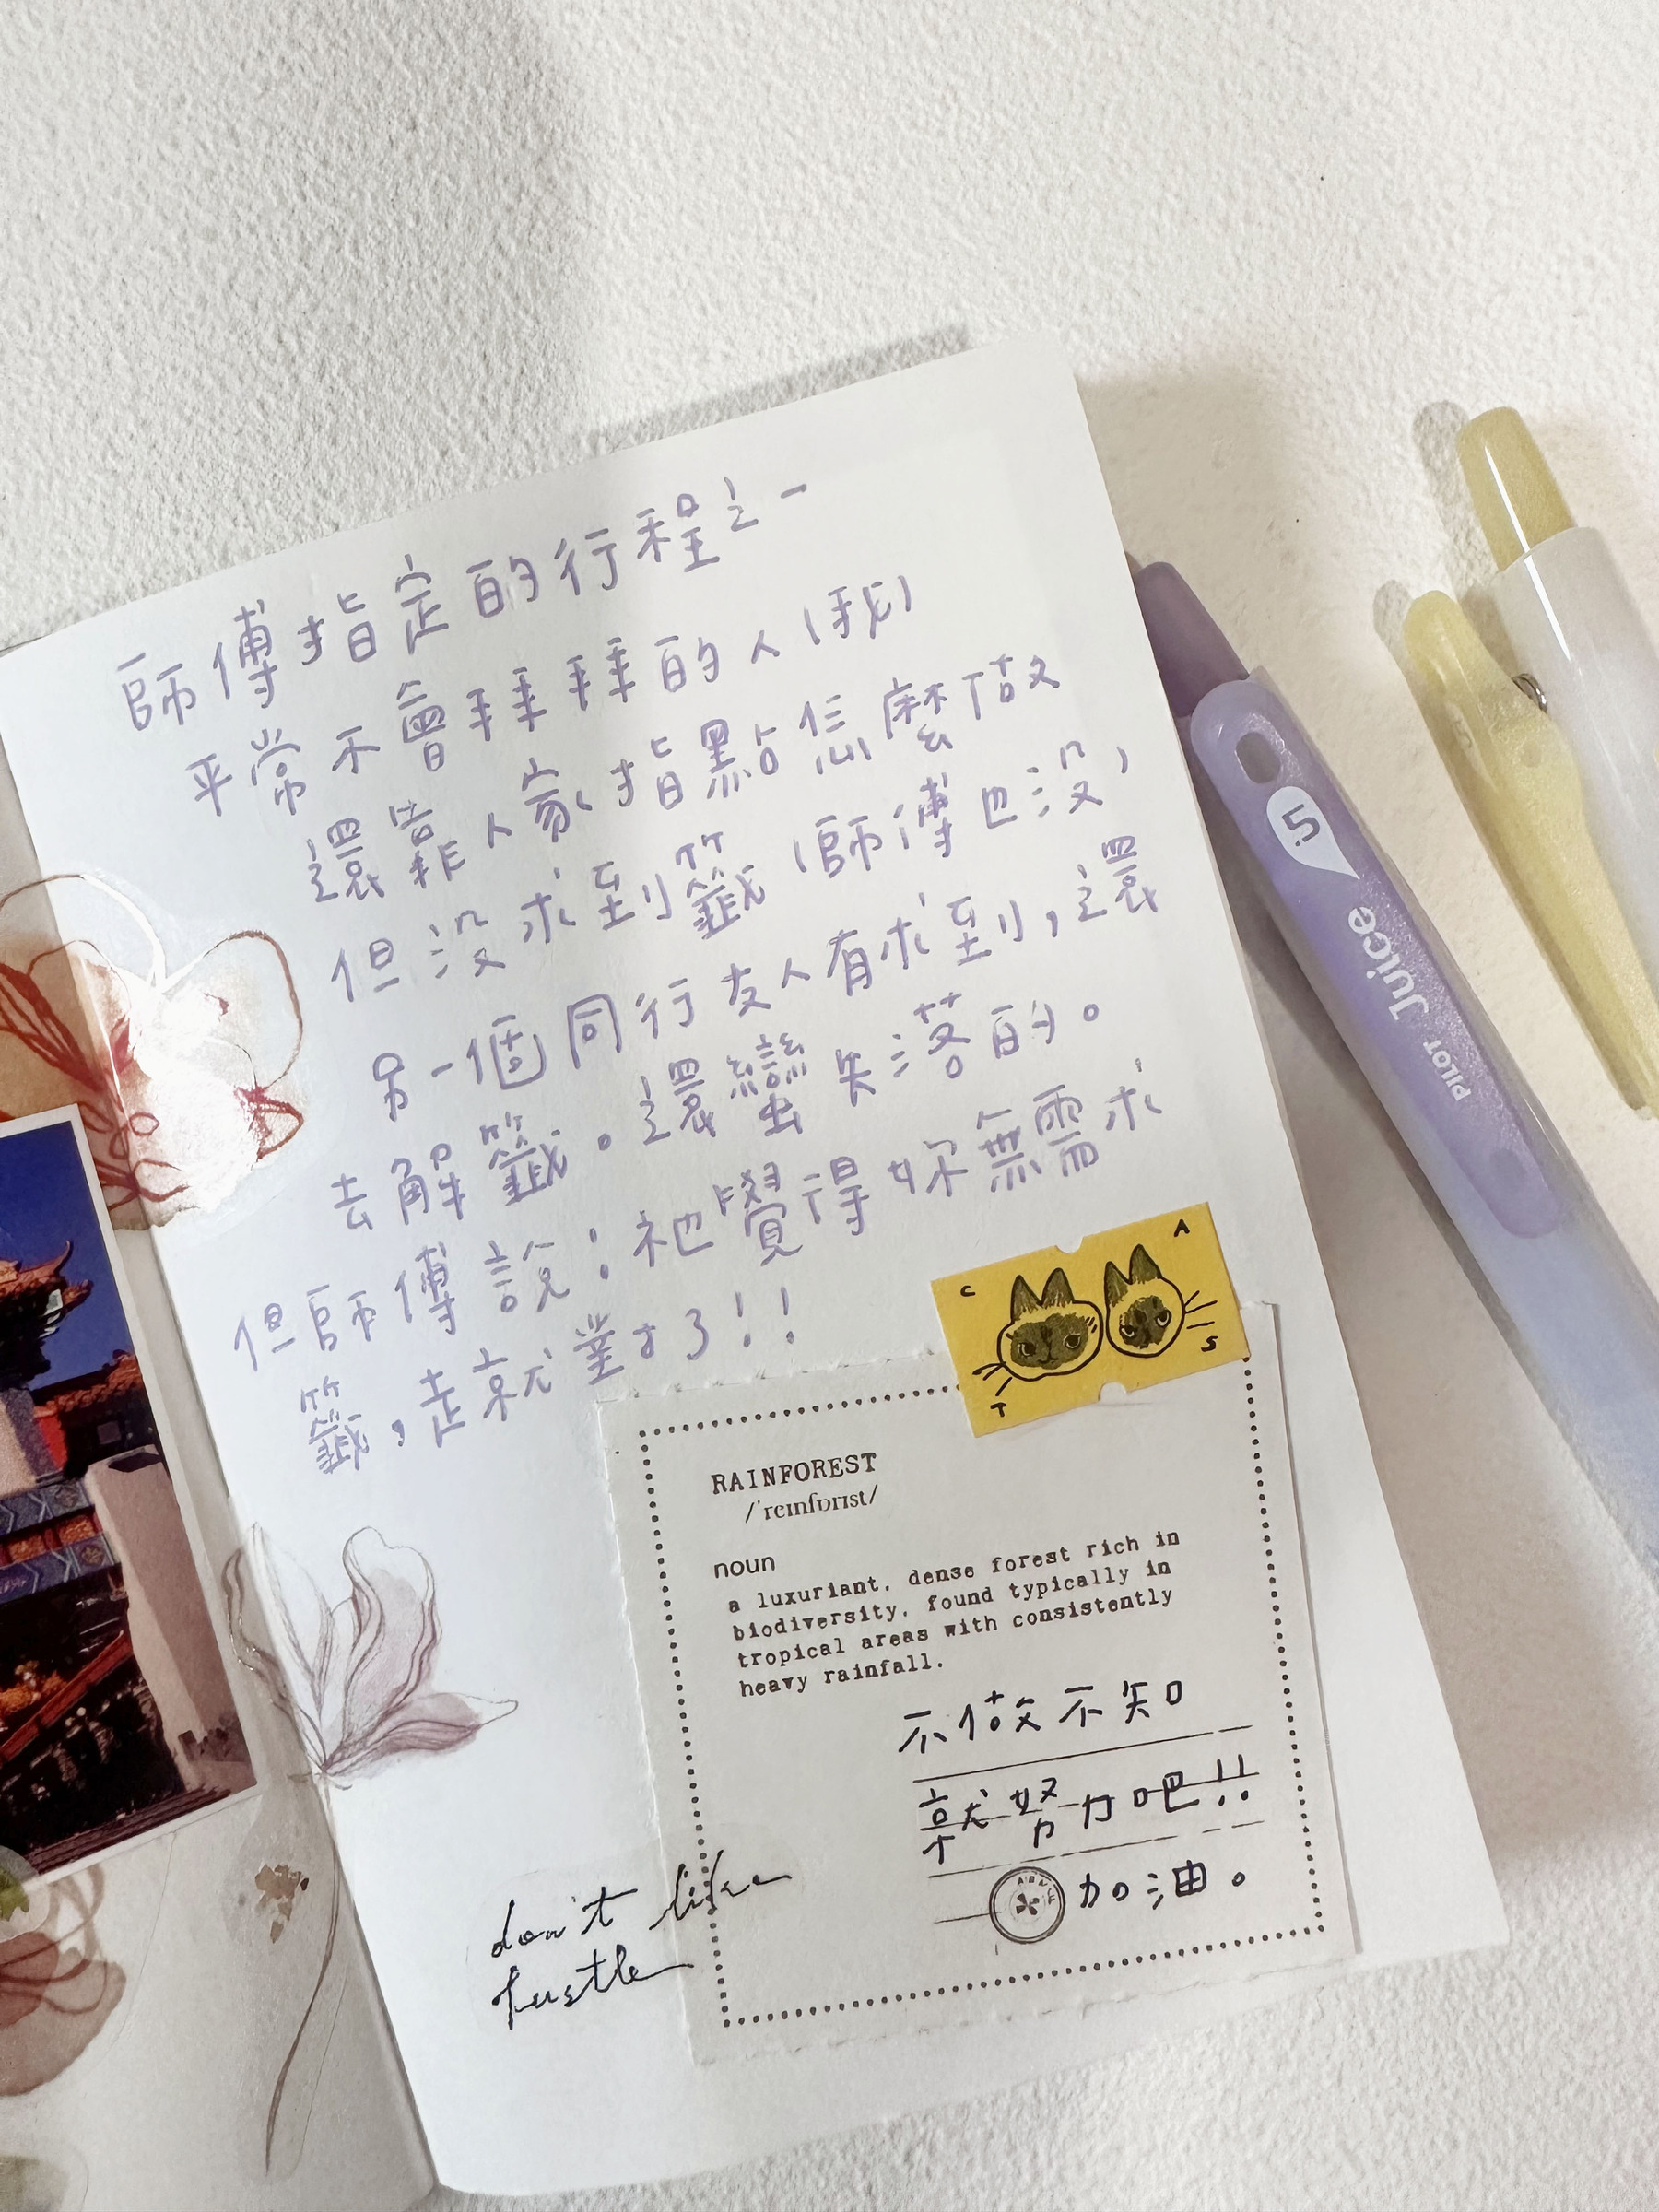 師傅指定的行程之一
平常不會拜拜的人(我)
還靠人家指點怎麼做
但沒求到籤(師傅也沒,
另一個同行友人有求到,還
去解籤。還蠻失落的。
但師傅說:祂覺得妳無需求
籤,走就對了!!
C A T S
RAINFOREST
/ˈreɪnfɒrɪst/
noun
a luxuriant, dense forest rich in
biodiversity, found typically in
tropical areas with consistently
heavy rainfall.
不做不知
就努力吧!!
加油。
don't like
hustle
5
Juice
PILOT